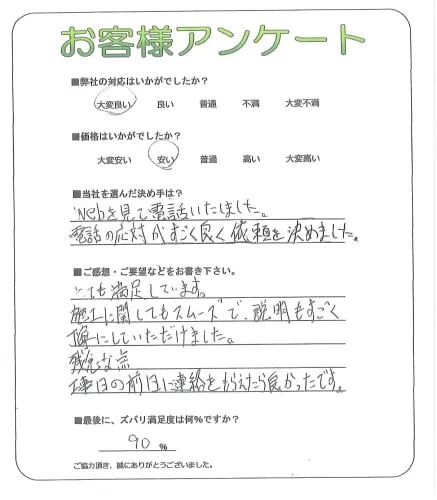 お客様アンケート
■弊社の対応はいかがでしたか?
大変良い 良い 普通 不満 大変不満
■価格はいかがでしたか?
大変安い 安い 普通 高い 大変高い
■当社を選んだ決め手は?
Webを見て電話いたしました。
電話の応対がすごく良く依頼を決めました。
■ご感想・ご要望などをお書き下さい。
とても満足しています。
施工に関してもスムーズで、説明もすごく
丁寧にしていただけました。
残念な点
工事日の前日に連絡をもらえたら良かったです。
■最後に、ズバリ満足度は何%ですか?
90 %
ご協力頂き、誠にありがとうございました。